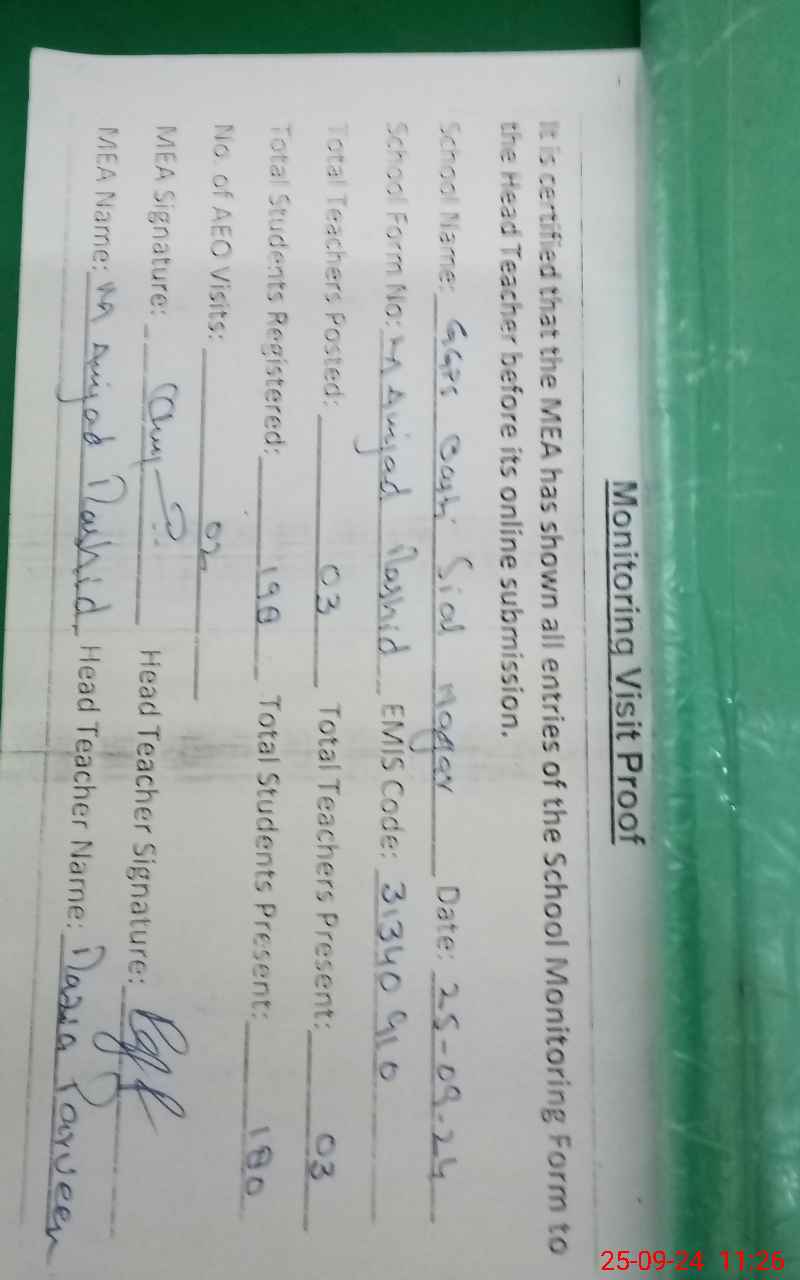 Monitoring Visit Proof
It is certified that the MEA has shown all entries of the School Monitoring Form to
the Head Teacher before its online submission.
School Name: GGPS Basti Sial Date: 25-09-24
School Form No: M Amjad Rashid EMIS Code: 31340910
Total Teachers Posted: 03 Total Teachers Present: 03
Total Students Registered: 198 Total Students Present: 180
No. of AEO Visits: 02
MEA Signature: Head Teacher Signature:
MEA Name: M Amjad Rashid Head Teacher Name: Nazia Parveen
25-09-24 11:26